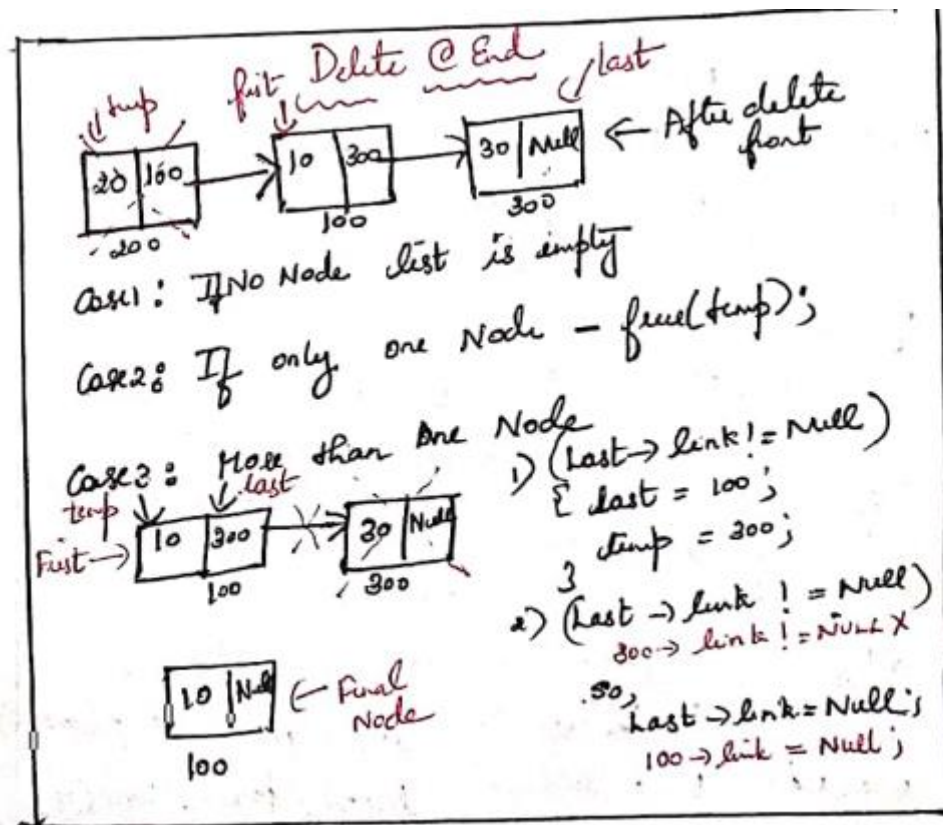 first Delete @ End last
temp
20 | 100
10 | 300
30 | Null
← After delete front
200
100
300
Case1: If No Node list is empty
Case2: If only one Node - free(temp);
Case3: More than one Node
temp
last
First →
10 | 300
30 | Null
100
300
1) (Last → link != Null)
{ last = 100;
temp = 300;
}
2) (Last → link != Null)
300 → link != NULL X
so,
Last → link = Null;
100 → link = Null;
10 | Null
← Final Node
100